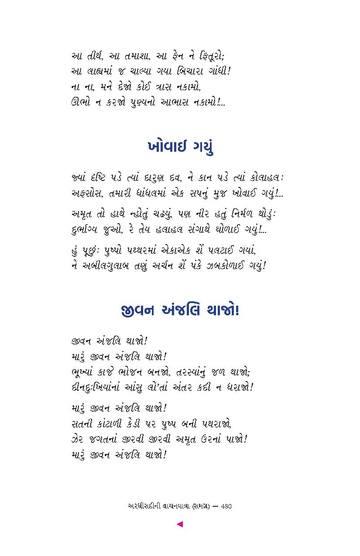 આ તીર્થ, આ તમાશા, આ ફેન ને ફિતૂરો;
આ લાહ્યમાં જ ચાલ્યા ગયા બિચારા ગાંધી!
ના ના, મને દેજો કોઈ ત્રાસ નકામો,
ઊભો ન કરજો પુણ્યનો આભાસ નકામો!...
ખોવાઈ ગયું
જ્યાં દૃષ્ટિ પડે ત્યાં દારુણ દવ, ને કાન પડે ત્યાં કોલાહલ:
અફસોસ, તમારી ધાંધલમાં એક સપનું મુજ ખોવાઈ ગયું!...
અમૃત તો હાથે ન્હોતું ચઢ્યું, પણ નીર હતું નિર્મળ થોડું:
દુર્ભાગ્ય જુઓ, રે તેય હલાહલ સંગાથે ઘોળાઈ ગયું!...
હું પૂછું: પુષ્પો પથ્થરમાં એકાએક શેં પલટાઈ ગયાં,
ને અબીલગુલાબ તણું અર્ચન શેં પંકે ઝબકોળાઈ ગયું!
જીવન અંજલિ થાજો!
જીવન અંજલિ થાજો!
મારું જીવન અંજલિ થાજો!
ભૂખ્યાં કાજે ભોજન બનજો, તરસ્યાંનું જળ થાજો;
દીનદુ:ખિયાંનાં આંસુ લો'તાં અંતર કદી ન ધરાજો!
મારું જીવન અંજલિ થાજો!
સતની કાંટાળી કેડી પર પુષ્પ બની પથરાજો,
ઝેર જગતનાં જીરવી જીરવી અમૃત ઉરનાં પાજો!
મારું જીવન અંજલિ થાજો!
અરધી સદીની વાચનયાત્રા (સમગ્ર) — 480